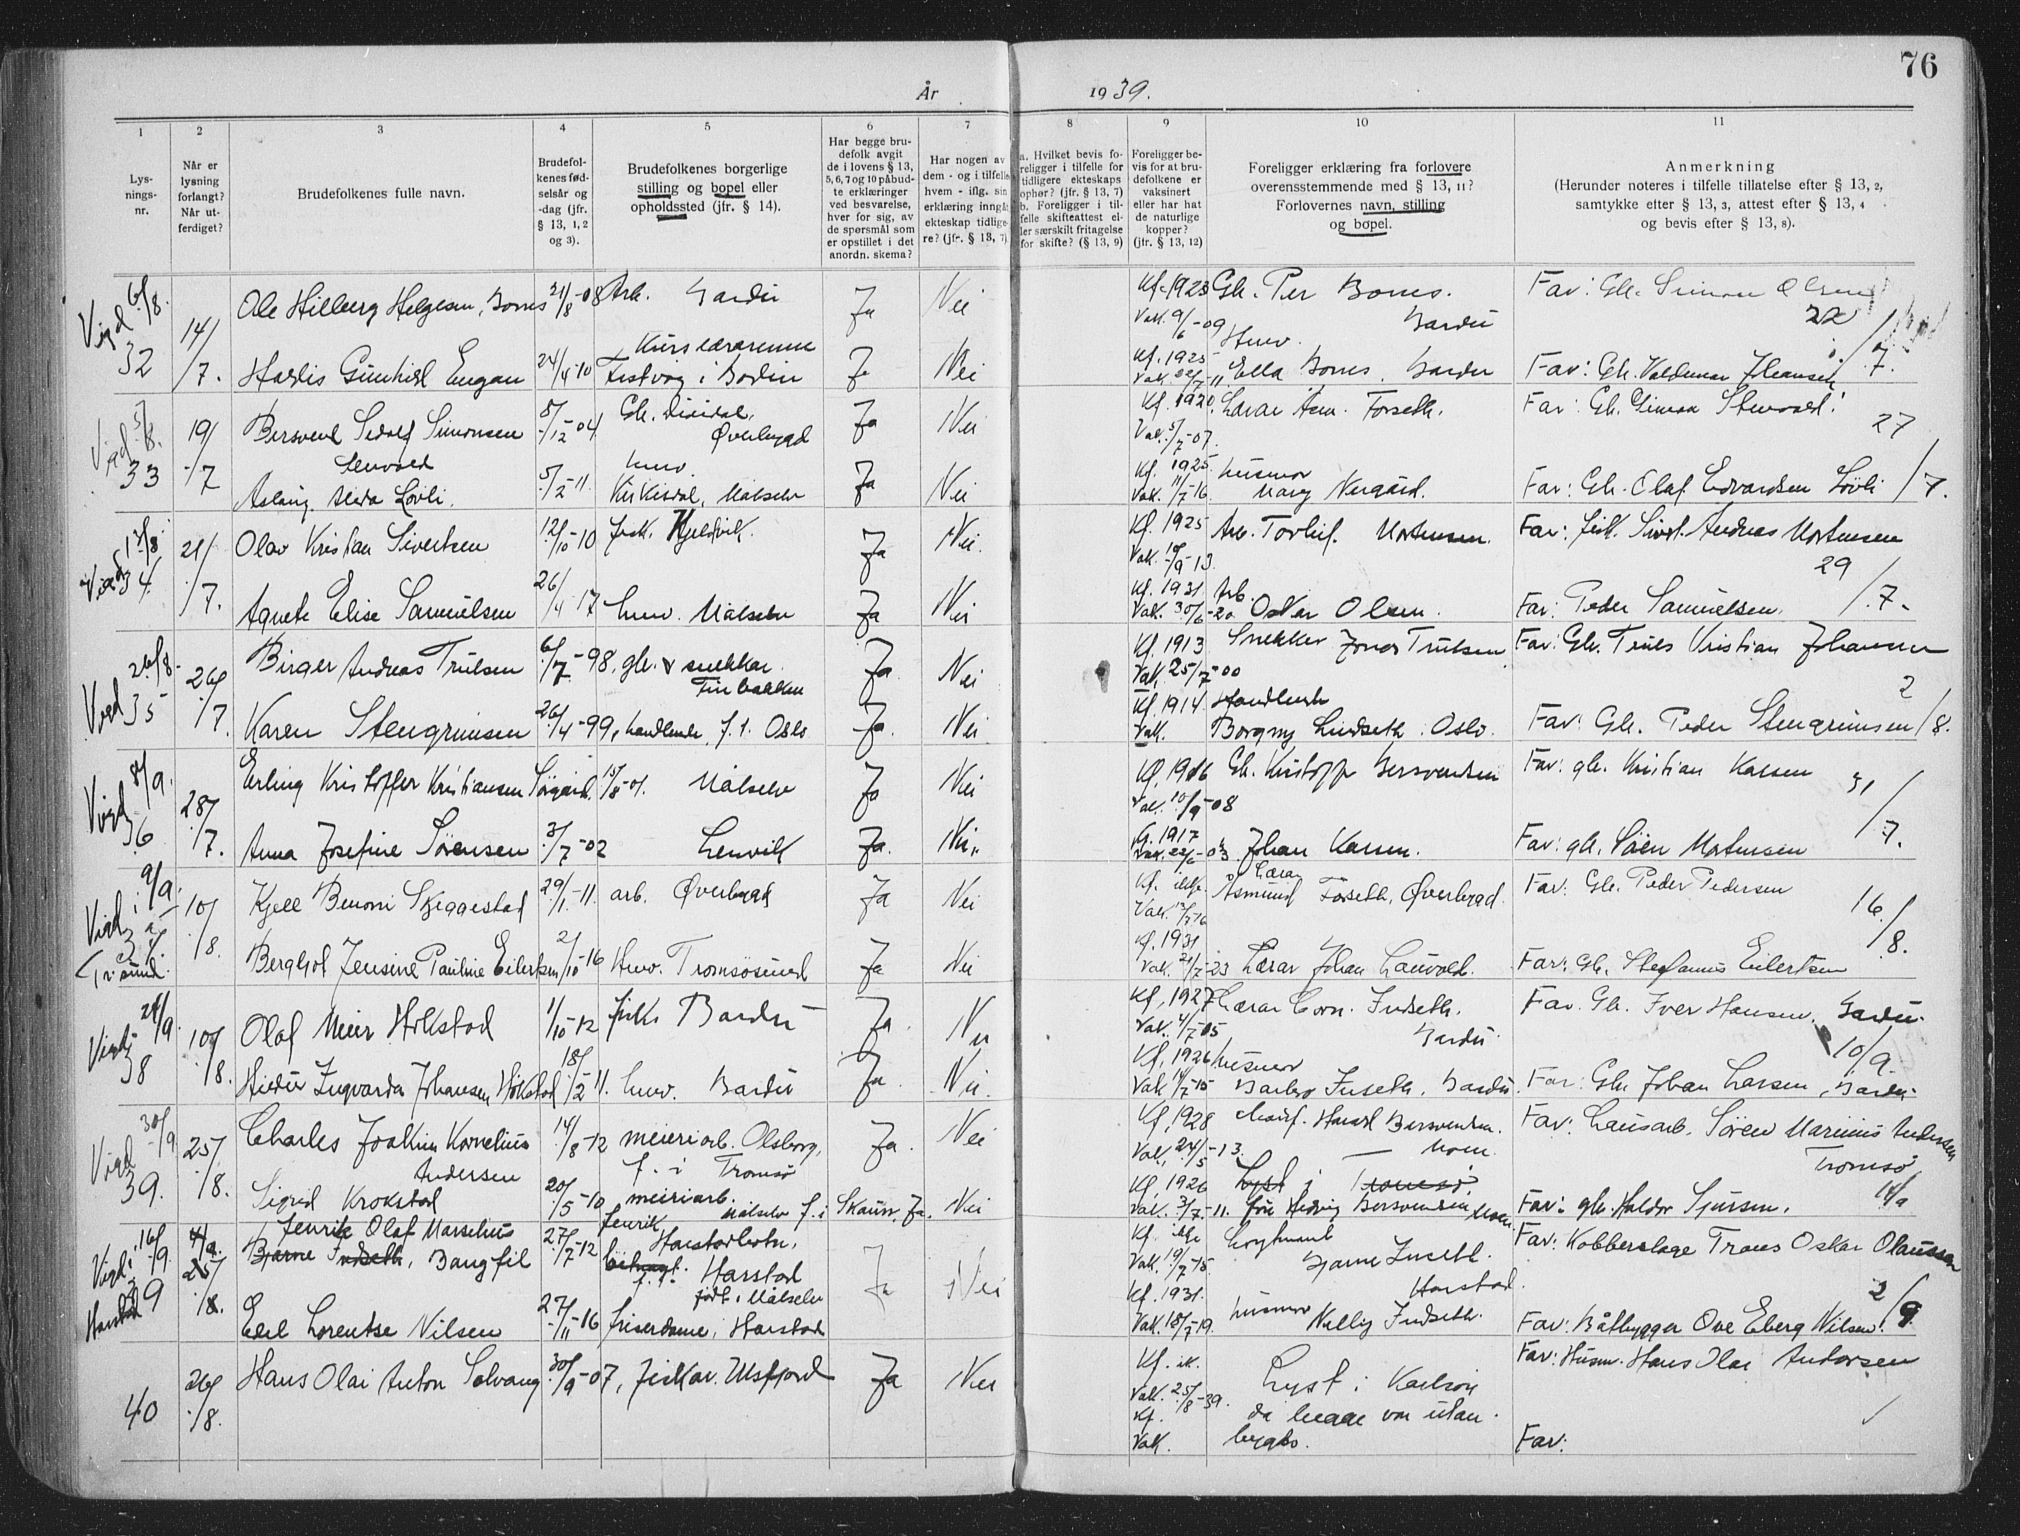 76
År 1939.
1 2 3 4 5 6 7 8 9 10 11
Lys-
nings-
nr.
Når er
lysning
forlangt?
Når ut-
ferdiget?
Brudefolkenes fulle navn.
Brudefol-
kenes fød-
selsår og
-dag (jfr.
§ 13, 1, 2
og 3).
Brudefolkenes borgerlige
stilling og bopel eller
opholdssted (jfr. § 14).
Har begge bru-
defolk avgit
de i lovens § 13,
5, 6, 7 og 10 påbud-
te erklæringer
ved besvarelse,
hver for sig, av
de spørsmål som
er opstillet i det
anordn. skema?
Har nogen av
dem - og i tilfelle
hvem - iflg. sin
erklæring inngåt
ekteskap tidlige-
re? (jfr. § 13, 7)
a. Hvilket bevis fo-
religger i tilfelle for
tidligere ekteskaps
ophør? (jfr. § 13, 7)
b. Foreligger i til-
felle skifteattest el-
ler særskilt fritagelse
for skifte? (§ 13, 9)
Foreligger be-
vis for at bru-
defolkene er
vaksinert
eller har hat
de naturlige
kopper?
(jfr. § 13, 12)
Foreligger erklæring fra forlovere
overensstemmende med § 13, 11?
Forlovernes navn, stilling
og bopel.
Anmerkning
(Herunder noteres i tilfelle tillatelse efter § 13, 2,
samtykke efter § 13, 3, attest efter § 13, 4
og bevis efter § 13, 8).
Vigd 6/8. 32 14/7. Ole Hilberg Helgesen, Bones 21/8-08 Arb. Bardu Ja Nei Kf. 1923 Gb. Per Bones. Far: Gb. Simon Olsen
Vak. 9/6-09 Bardu 22/7.
Husv.
Hardis Gunhild Engan 24/4-10 Kurslærarinne
Festvåg i Bodin Ja Nei Kf. 1925 Vak. 22/7-11 Ella Bones. Bardu Far: Gb. Valdemar Johansen
Vigd 5/8. 33 19/7 Bersvend Sedolf Simonsen 5/12-04 Gb. Dividal, Øverbygd Ja Nei Kf. 1920. Lærar Asm. Forseth. Far: Gb. Simon
Vak. 5/7-07. 27/7.
Aslaug Alida Løvli. 5/2-11. husv. Kirkesdal, Målselv Ja Nei Kf. 1925. Vak. 11/7-16. husmor Mary Nergård. Far: Gb. Olaf Edvardsen Løvli
Vigd 13/8. 34. 21/7. Olav Kristian Sivertsen 12/10-10 fisk. Kjeldvik. Ja Nei. Kf. 1925 Arb. Torleif Mortensen. Far: fisk. Sivert Andreas Mortensen
Vak. 10/9-13. 29/7.
Agnete Elise Samuelsen 26/4-17 husv. Målselv Ja Nei Kf. 1931. Vak. 30/6-20. Arb. Oskar Olsen. Far: Peder Samuelsen.
Vigd 26/8. 35 26/7. Birger Andreas Trulsen 6/7-98, gb. & snekkar. Finbakken Ja. Nei Kf. 1913 Snekker Jonas Trulsen Far: Gb. Truls Kristian Johansen
Vak. 25/7-00 2/8.
Karen Stengrimsen 26/4-99, handlende, f. i. Oslo Ja. Nei Kf. 1914. Vak. Handlende Borgny Lindseth. Oslo. Far: Gb. Peder Stengrimsen
Vigd 8/9. 36 28/7. Erling Kristoffer Kristiansen Sørgård. 15/8-01. Målselv Ja Nei Kf. 1916 Gb. Kristoffer Bersvendsen Far: gb. Kristian Karsen
Vak. 10/9-08 31/7.
Anna Josefine Sørensen 3/7-02 Lenvik Ja. Nei. Kf. 1917 Vak. 22/6-03 Johan Karsen. Far: gb. Søren Mortensen
Vigd i 9/9. Tr.sund. 10/8. Kjell Benoni Skjeggestad 29/1-11. arb. Øverbygd Ja Nei Kf. ikkje Lærar Åsmund Forseth, Øverbygd. Far: Gb. Peder Pedersen
Vak. 12/7-16 16/8.
Bergljot Jensine Pauline Eilertsen 2/10-16 Husv. Tromsøsund Ja Nei Kf. 1931. Vak. 21/7-23 Lærar Johan Lauvold. Far: Gb. Stefanus Eilertsen
Vigd 24/9. 38 10/8. Olaf Meier Hokstad 1/10-12 fisk. Bardu Ja. Nei Kf. 1927 Lærar Corn. Indseth. Bardu Far. Gb. Iver Hansen. Bardu.
Vak. 4/7-05 10/9.
Ingvarda Johansen Hokstad 18/2-11. husv. Bardu Ja. Nei. Kf. 1926 Vak. 14/7-15 husmor Barbro Inseth. Bardu. Far: Gb. Johan Larsen, Bardu.
Vigd 30/9. 39. 25/8. Charles Joakim Kornelius Andersen 14/8-12 meieriarb. Olsborg, f. i Tromsø Ja. Nei Kf. 1928 Harald Bersvendsen. Moen. Far: Lausarb. Søren Marinius Andersen Tromsø
Vak. 24/5-13. Lyst i Tromsø.
Sigrid Krokstad 20/5-10 meieriarb. Målselv f. i Skaun, Ja. Nei Kf. 1926 Vak. 3/7-11. fru Hedvig Bersvendsen Moen. Far: gb. Haldor Sjursen. 14/9
Vigd i 16/9. Harstad 39 4/9. 25/8. Jenrik Olaf Marselius
Bjarne Indseth, Bangfil 27/7-12 Jenrik, Harstadbotn, Harstad født i Målselv Ja Nei Kf. ikkje Løytnant Bjarne Inseth. Harstad. Far: Kobberslage Trons Oskar Olaussen
Vak. 19/7-15. 2/9
Edel Lorentse Nilsen 27/11-16 friserdame, Harstad Kf. 1931. Vak. 18/7-19. husmor Nelly Indseth. Far: Båtbygger Ove Eberg Nilsen.
40 26/8. Hans Olai Anton Solvang 30/9-07, fiskar. Ulsfjord Ja Nei Kf. ik. Lyst i Karlsøy Far: Husm. Hans Olai Andersen
Vak. 25/8-39. da begge var utan-
Kf. bygbo.
Vak. Far: